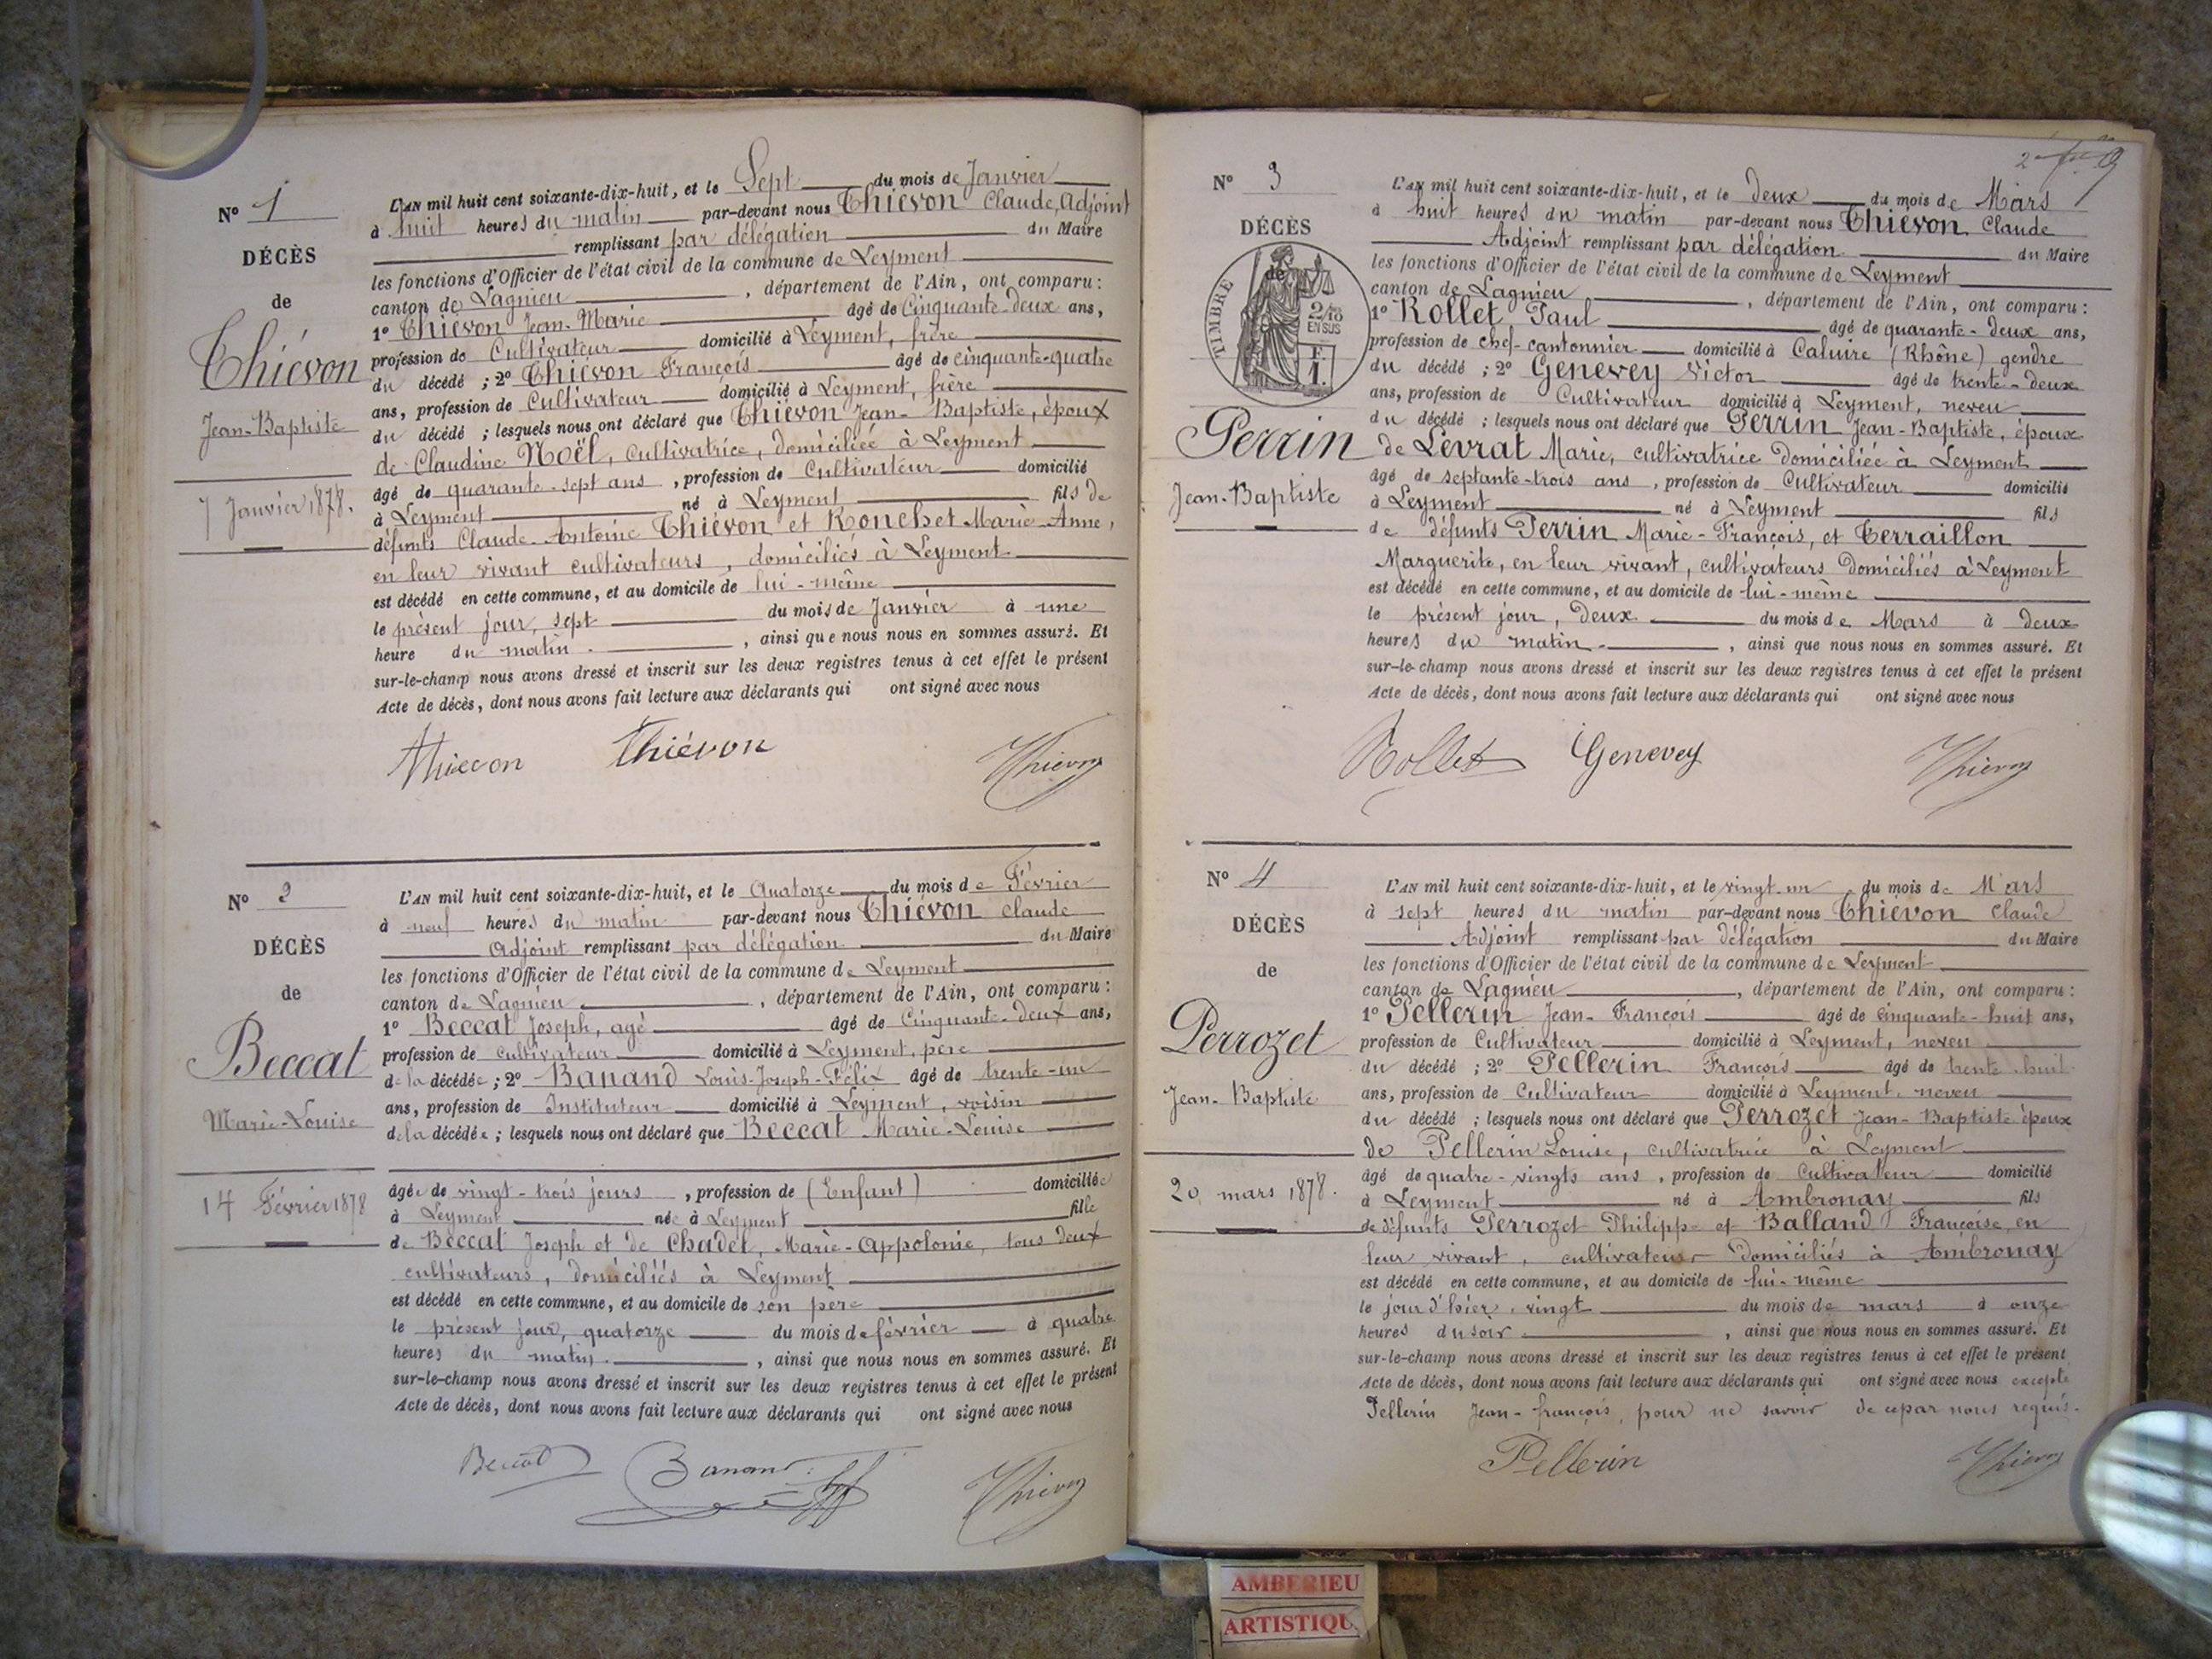 N° 1
DÉCÈS
de
Thiévon
Jean-Baptiste
7 Janvier 1878.
L'AN mil huit cent soixante-dix-huit, et le Sept du mois de Janvier
à huit heures du matin par-devant nous Thiévon Claude, Adjoint
remplissant par délégation du Maire
les fonctions d'Officier de l'état civil de la commune de Leyment
canton de Lagnieu, département de l'Ain, ont comparu :
1° Thiévon Jean-Marie âgé de Cinquante-deux ans,
profession de Cultivateur domicilié à Leyment, frère
du décédé ; 2° Thiévon François âgé de cinquante-quatre
ans, profession de Cultivateur domicilié à Leyment, frère
du décédé ; lesquels nous ont déclaré que Thiévon Jean-Baptiste, époux
de Claudine Noël, cultivatrice, domiciliée à Leyment
âgé de quarante-sept ans, profession de Cultivateur domicilié
à Leyment né à Leyment fils de
défunts Claude-Antoine Thiévon et Ronchet Marie-Anne,
en leur vivant cultivateurs, domiciliés à Leyment
est décédé en cette commune, et au domicile de lui-même
le présent jour, sept du mois de Janvier à une
heure du matin, ainsi que nous nous en sommes assuré. Et
sur-le-champ nous avons dressé et inscrit sur les deux registres tenus à cet effet le présent
Acte de décès, dont nous avons fait lecture aux déclarants qui ont signé avec nous
Thiévon Thiévon Thiévon
N° 2
DÉCÈS
de
Beccat
Marie-Louise
14 Février 1878
L'AN mil huit cent soixante-dix-huit, et le Quatorze du mois de Février
à neuf heures du matin par-devant nous Thiévon Claude
Adjoint remplissant par délégation du Maire
les fonctions d'Officier de l'état civil de la commune de Leyment
canton de Lagnieu, département de l'Ain, ont comparu :
1° Beccat Joseph, agé âgé de Cinquante-deux ans,
profession de cultivateur domicilié à Leyment, père
de la décédée ; 2° Banand Louis-Joseph-Félix âgé de trente-un
ans, profession de Instituteur domicilié à Leyment, voisin
de la décédée ; lesquels nous ont déclaré que Beccat Marie-Louise
âgée de vingt-trois jours, profession de (Enfant) domiciliée
à Leyment née à Leyment fille
de Beccat Joseph et de Chadel, Marie-Appolonie, tous deux
cultivateurs, domiciliés à Leyment
est décédé en cette commune, et au domicile de son père
le présent jour, quatorze du mois de février à quatre
heures du matin, ainsi que nous nous en sommes assuré. Et
sur-le-champ nous avons dressé et inscrit sur les deux registres tenus à cet effet le présent
Acte de décès, dont nous avons fait lecture aux déclarants qui ont signé avec nous
Beccat Banand Thiévon
N° 3
DÉCÈS
de
TIMBRE
2/10
EN SUS
F.
1.
Perrin
Jean-Baptiste
L'AN mil huit cent soixante-dix-huit, et le deux du mois de Mars
à huit heures du matin par-devant nous Thiévon Claude
Adjoint remplissant par délégation du Maire
les fonctions d'Officier de l'état civil de la commune de Leyment
canton de Lagnieu, département de l'Ain, ont comparu :
1° Rollet, Paul âgé de quarante-deux ans,
profession de chef-cantonnier domicilié à Caluire (Rhône) gendre
du décédé ; 2° Genevey Victor âgé de trente-deux
ans, profession de Cultivateur domicilié à Leyment, neveu
du décédé ; lesquels nous ont déclaré que Perrin Jean-Baptiste, époux
de Levrat Marie, cultivatrice domiciliée à Leyment
âgé de septante-trois ans, profession de Cultivateur domicilié
à Leyment né à Leyment fils
de défunts Perrin Marie-François, et Terraillon
Marguerite, en leur vivant, cultivateurs domiciliés à Leyment
est décédé en cette commune, et au domicile de lui-même
le présent jour, deux du mois de Mars à deux
heures du matin, ainsi que nous nous en sommes assuré. Et
sur-le-champ nous avons dressé et inscrit sur les deux registres tenus à cet effet le présent
Acte de décès, dont nous avons fait lecture aux déclarants qui ont signé avec nous
Rollet Genevey Thiévon
N° 4
DÉCÈS
de
Perrozet
Jean-Baptiste
20 mars 1878.
L'AN mil huit cent soixante-dix-huit, et le vingt-un du mois de Mars
à sept heures du matin par-devant nous Thiévon Claude
Adjoint remplissant par délégation du Maire
les fonctions d'Officier de l'état civil de la commune de Leyment
canton de Lagnieu, département de l'Ain, ont comparu :
1° Pellerin Jean-François âgé de cinquante-huit ans,
profession de Cultivateur domicilié à Leyment, neveu
du décédé ; 2° Pellerin François âgé de trente-huit
ans, profession de Cultivateur domicilié à Leyment, neveu
du décédé ; lesquels nous ont déclaré que Perrozet Jean-Baptiste époux
de Pellerin Louise, cultivatrice à Leyment
âgé de quatre-vingts ans, profession de Cultivateur domicilié
à Leyment né à Ambronay fils
de défunts Perrozet Philippe et Balland Françoise, en
leur vivant, cultivateurs domiciliés à Ambronay
est décédé en cette commune, et au domicile de lui-même
le jour d'hier, vingt du mois de mars à onze
heures du soir, ainsi que nous nous en sommes assuré. Et
sur-le-champ nous avons dressé et inscrit sur les deux registres tenus à cet effet le présent
Acte de décès, dont nous avons fait lecture aux déclarants qui ont signé avec nous excepté
Pellerin Jean-françois, pour ne savoir de ce par nous requis.
Pellerin Thiévon
AMBERIEU
ARTISTIQU